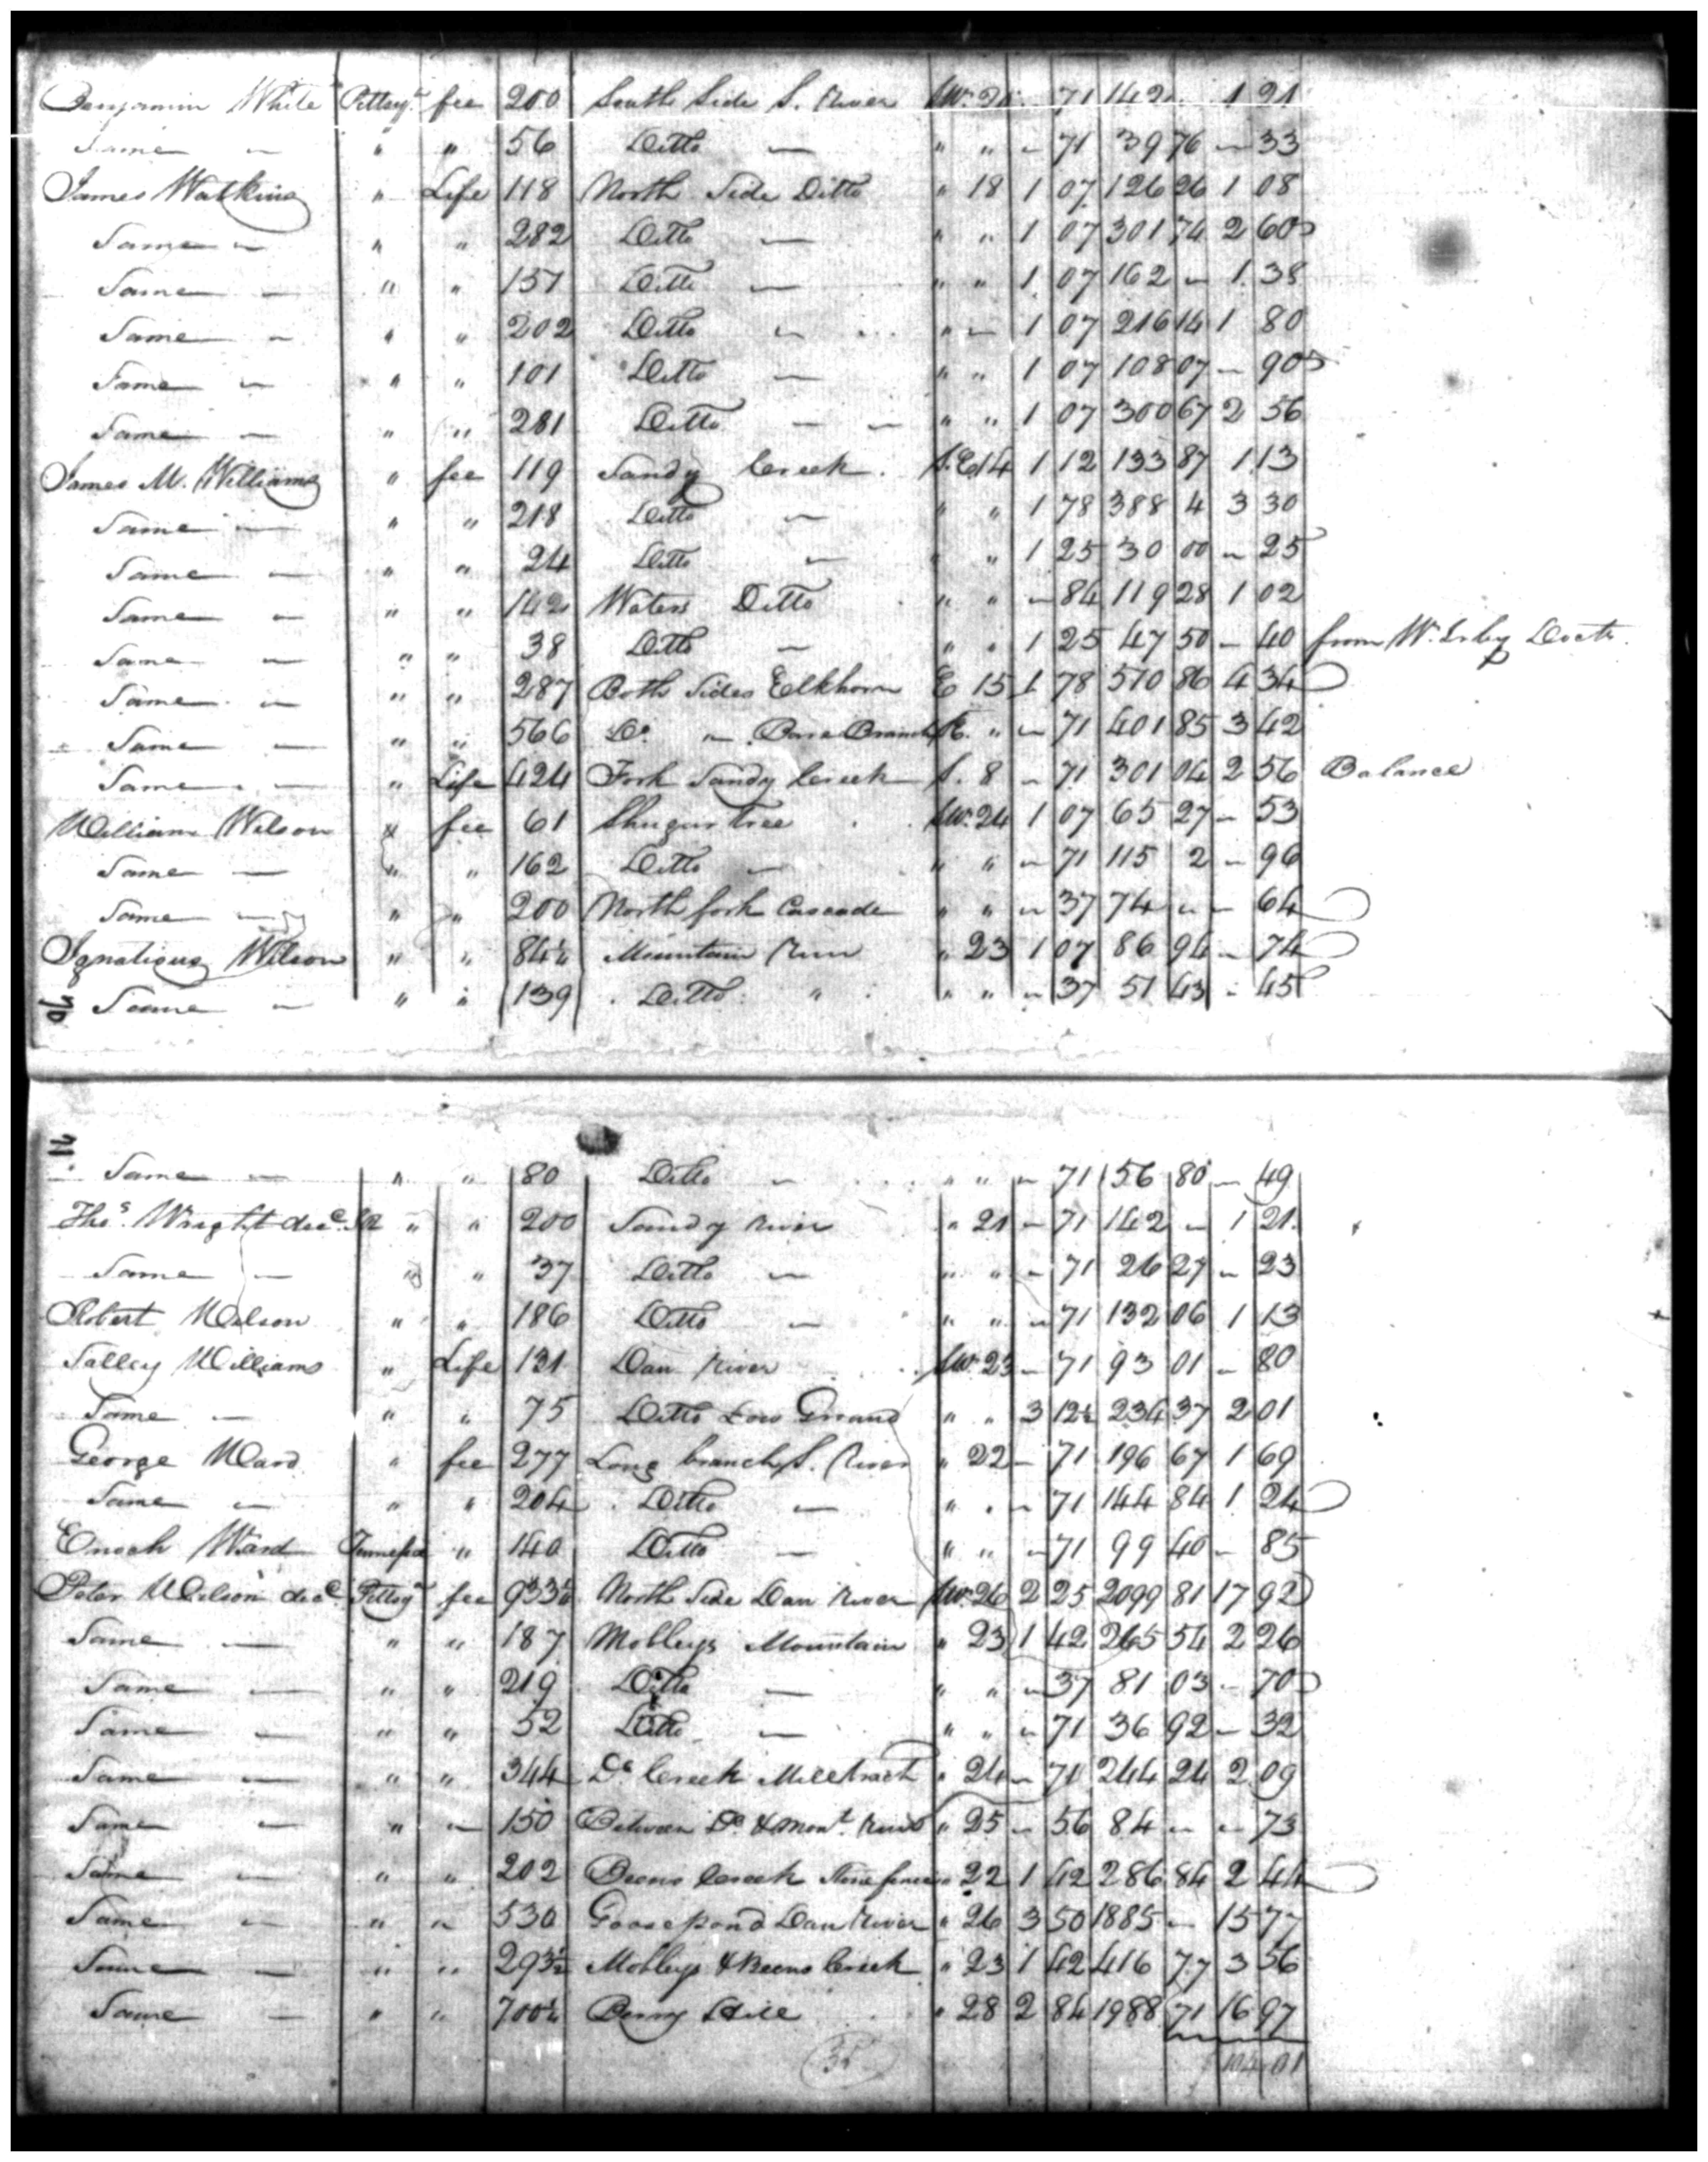 Benjamin White Pittsyᵃ fee 200 South Side S. River SW. 21 71 142 " 1 21
Same — " " 56 Ditto — " " — 71 39 76 — 33
James Watkins " Life 118 North Side Ditto " 18 1 07 126 26 1 08
Same — " " 282 Ditto — " " 1 07 301 74 2 60
Same — " " 151 Ditto — " " 1 07 162 — 1 38
Same — " " 202 Ditto — " — 1 07 216 14 1 80
Same — " " 101 Ditto — " " 1 07 108 07 — 90
Same — " " 281 Ditto — — " " 1 07 300 67 2 56
James M. Williams " fee 119 Sandy Creek S.E. 14 1 12 133 87 1 13
Same — " " 218 Ditto — " " 1 78 388 4 3 30
Same — " " 24 Ditto — " " 1 25 30 00 — 25
Same — " " 142 Waters Ditto " " — 84 119 28 1 02
Same — " " 38 Ditto — " " 1 25 47 50 — 40 from W. Irby Doctr.
Same — " " 287 Both Sides Elkhorn E 15 1 78 510 86 4 34
Same — " " 566 Dᵒ — Bare Branch E. " — 71 401 85 3 42
Same — " Life 424 Fork Sandy Creek S. 8 — 71 301 04 2 56 Balance
William Wilson " fee 61 Shugar tree SW. 24 1 07 65 27 — 53
Same — " " 162 Ditto — " " — 71 115 2 — 96
Same — " " 200 North fork Cascade " " — 37 74 — — 64
Ignatious Wilson " " 84½ Mountain Run " 23 1 07 86 94 — 74
70 Same — " " 139 Ditto " " " — 37 51 43 — 45
71
Same — " " 80 Ditto — " " — 71 56 80 — 49
Thoˢ. Wright decᵈ. " " 200 Sandy River " 21 — 71 142 — 1 21
Same — " " 37 Ditto — " " — 71 26 27 — 23
Robert Wilson " " 186 Ditto — " " — 71 132 06 1 13
Salley Williams " Life 131 Dan River SW. 23 — 71 93 01 — 80
Same — " " 75 Ditto Low Ground " " 3 12½ 234 37 2 01
George Ward " fee 277 Long branch S. River " 22 — 71 196 67 1 69
Same — " " 204 Ditto — " " — 71 144 84 1 24
Enoch Ward Tennessee " 140 Ditto — " " — 71 99 40 — 85
Peter Wilson decᵈ Pittsyᵃ fee 933½ North Side Dan River SW. 26 2 25 2099 81 17 92
Same — " " 187 Mobleys Mountain " 23 1 42 265 54 2 26
Same — " " 219 Ditto — " " — 37 81 03 — 70
Same — " " 52 Ditto — " " — 71 36 92 — 32
Same — " " 344 Dᵒ Creek Mill tract " 24 — 71 244 24 2 09
Same — " — 150 Between Dᵒ & Monᵗ. Runs " 25 — 56 84 — — 73
Same — " " 202 Beens Creek " 22 1 42 286 84 2 44
Same — " " 530 Goosepond Dan River " 26 3 50 1885 — 15 77
Same — " " 293½ Mobleys & Beens Creek " 23 1 42 416 77 3 56
Same — " " 700½ Berry Hill " 28 2 84 1988 71 16 97
104 01